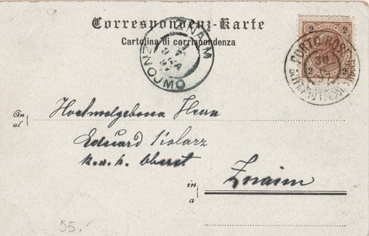 Correspondenz-Karte
Cartolina di corrispondenza
ZNAIM
ZNOJMO
PORTO ROSE
2 2
An
al
Hochwolgeborne Herrn
Eduard Kolarz
k.u.k. Oberst
in
a
Znaim
55.-